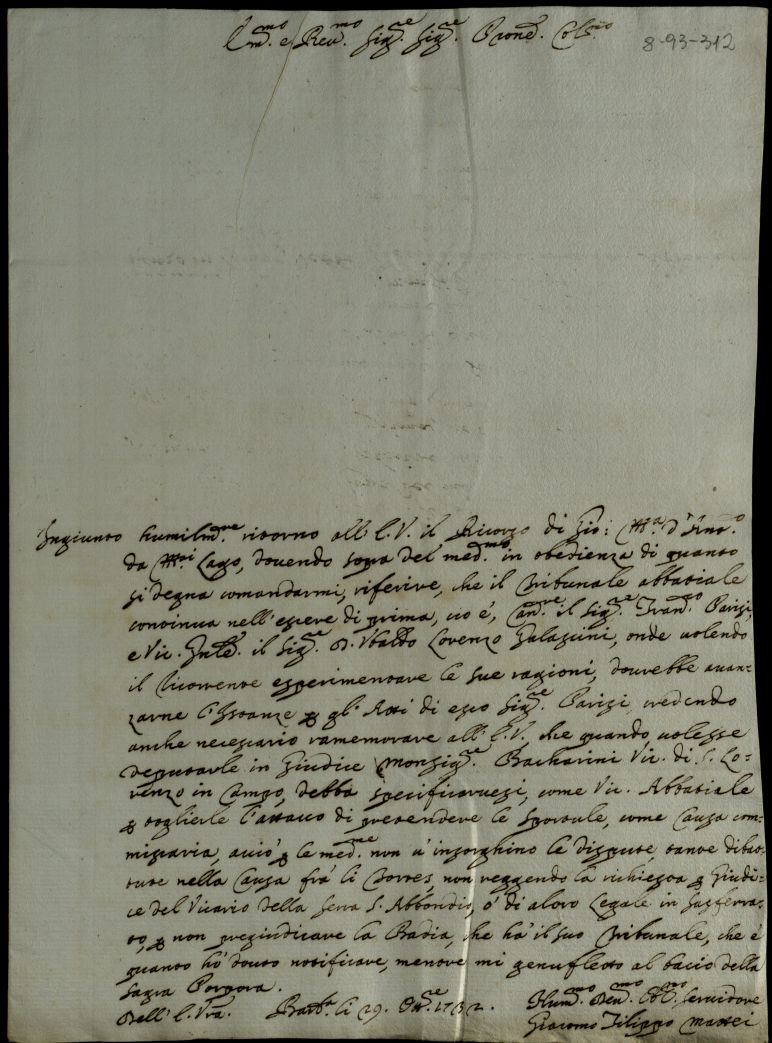 E.mo e Reu.mo Sig.re Sig.re Prone. Col.mo 8-93-312
Ingiunto humilm.te ritorno all' E.V. il Ricorso di Gio: M.a d'Ant.o
da M.ti Lago, douendo sopra del med.mo in obedienza di quanto
si degna comandarmi, riferire, che il Tribunale abbatiale
continua nell'essere di prima, cio è, il Sig.re Fran.co Parisi,
e Vic. Gnle. il Sig.re D. Vbaldo Lorenzo Galassini, onde uolendo
il ricorrente esperimentare le sue ragioni, dourebbe auan-
zarne l'Istanze p gl'Atti di esso Sig.re Parisi, credendo
anche necessario ramemorare all' E.V., che quando uolesse
deputarle in Giudice Monsig.re Bacharini Vic. di S. Lo-
renzo in Campo, debba specificaruesi, come Vic. Abbatiale
p toglierle l'attacco di pretendere le sportule, come Causa com-
missaria, acciò p le med.me non u' insorghino le dispute, tante dibat-
tute nella Causa frà li Torres, non reggendo la richiesta p Giudi-
ce del Vicario della Serra S. Abbondio, ò di altro Legale in Sasferra-
to, p non pregiudicare la Badia, che hà il suo Tribunale, che è
quanto hò douto notificare, mentre mi genufletto al bacio della
Sagra Porpora.
Dell' E. Vra. Barb.a li 29. Ott.re 1732. Humil.mo Deu.mo Obl.mo Seruidore
Giacomo Filippo Mattei